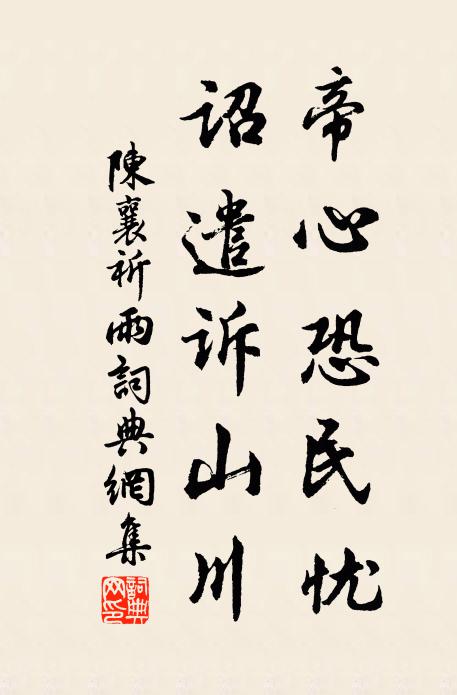 帝心恐民忧
诏遣诉山川
陳襄祈雨詞典網集
詞典
网印